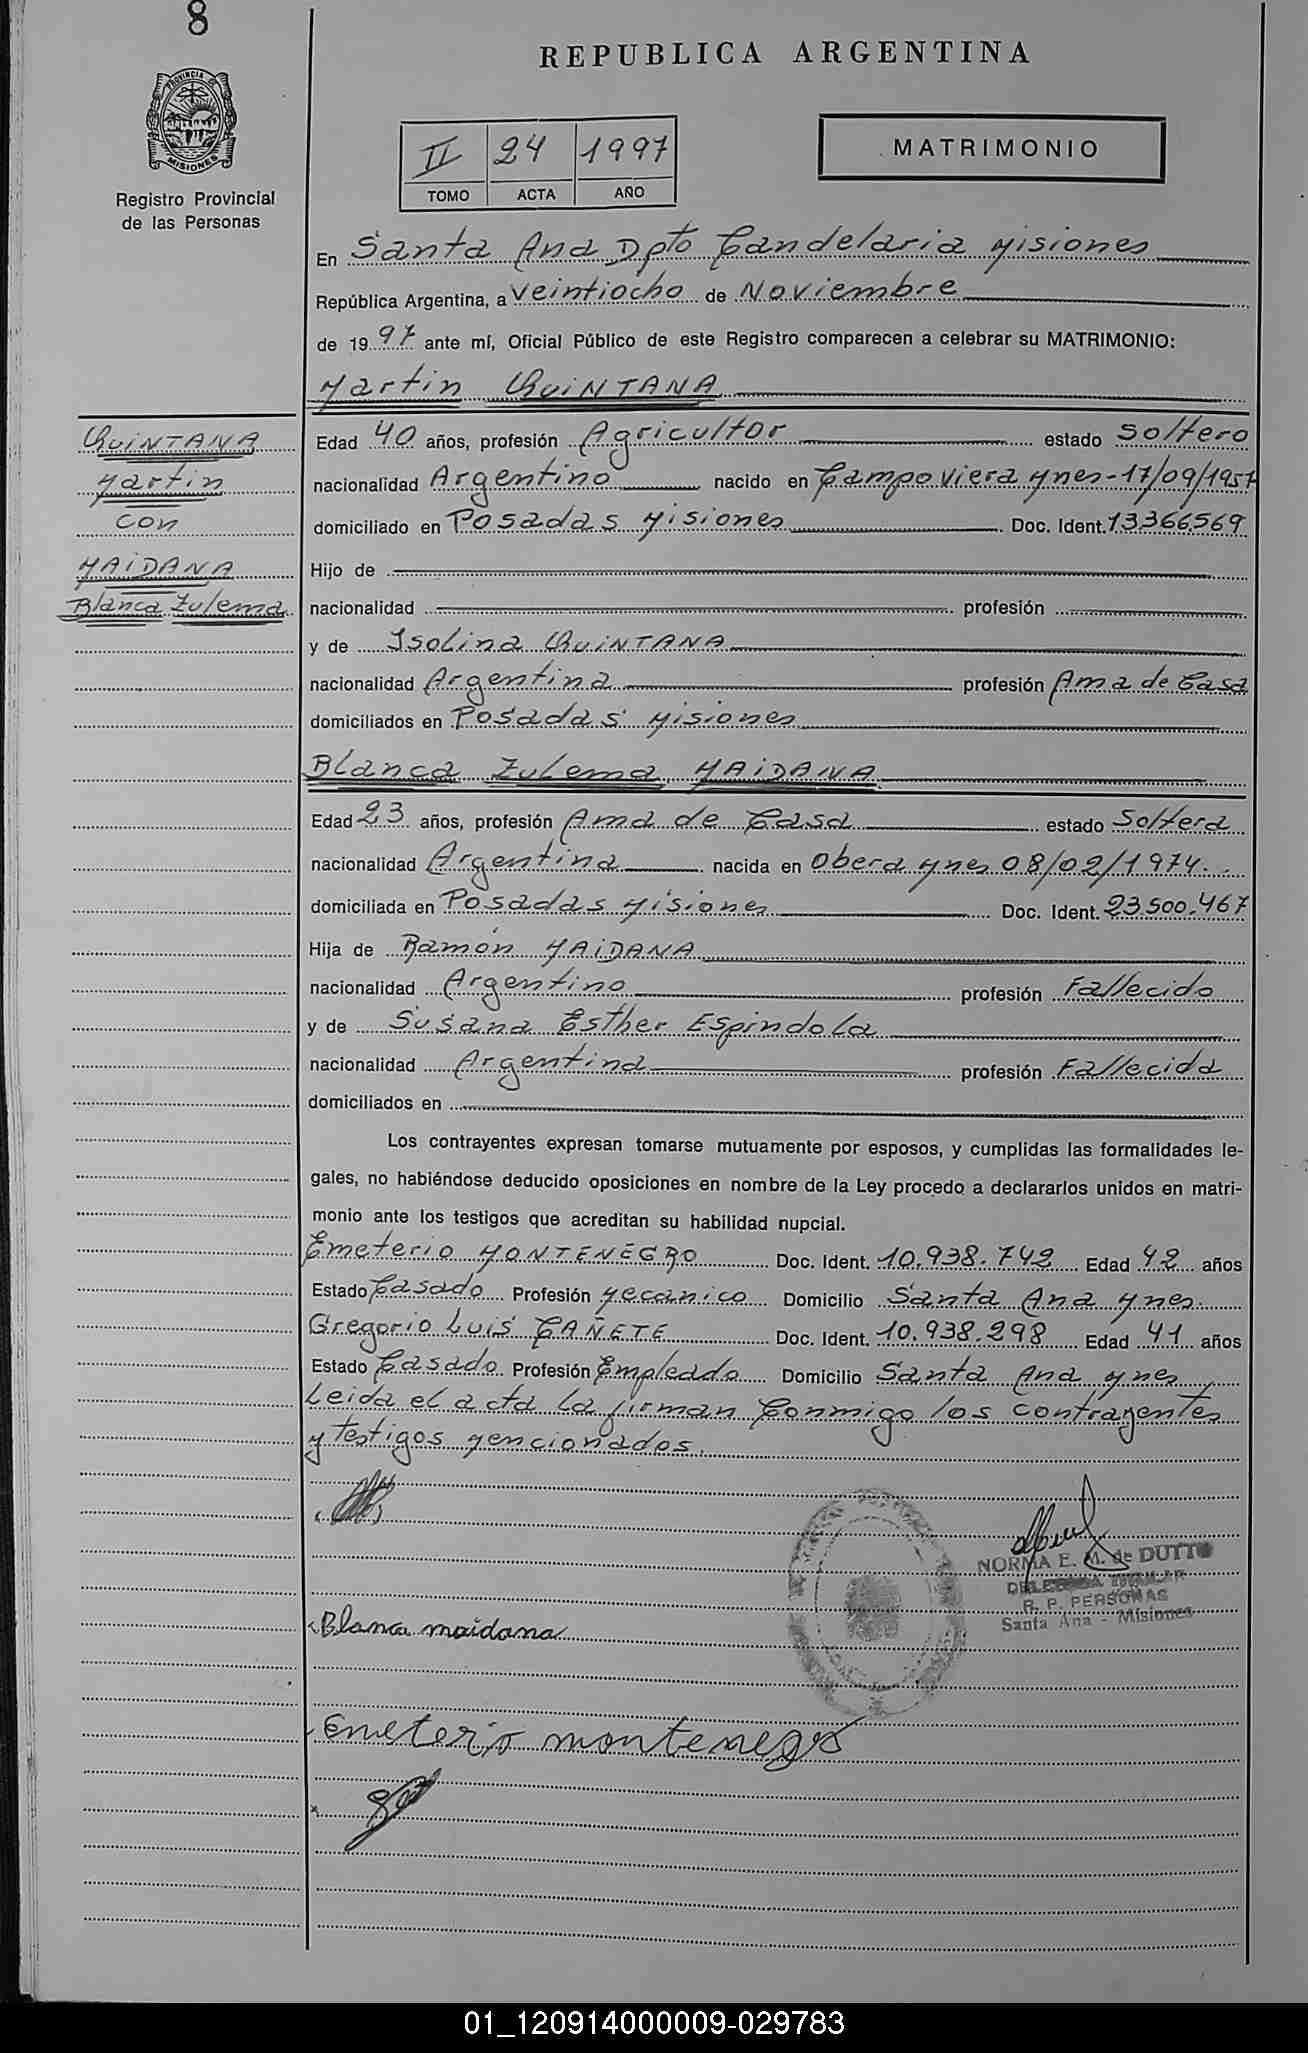 8
REPUBLICA ARGENTINA
PROVINCIA DE
MISIONES
Registro Provincial
de las Personas
II 24 1997
TOMO ACTA AÑO
MATRIMONIO
En Santa Ana Dpto Candelaria Misiones
República Argentina, a Veintiocho de Noviembre
de 1997 ante mí, Oficial Público de este Registro comparecen a celebrar su MATRIMONIO:
Martin QUINTANA
QUINTANA
Martin
con
MAIDANA
Blanca Zulema
Edad 40 años, profesión Agricultor estado Soltero
nacionalidad Argentino nacido en Campo Viera Mnes-17/09/1957
domiciliado en Posadas Misiones Doc. Ident. 13.366.569
Hijo de
nacionalidad profesión
y de Isolina QUINTANA
nacionalidad Argentina profesión Ama de Casa
domiciliados en Posadas Misiones
Blanca Zulema MAIDANA
Edad 23 años, profesión Ama de Casa estado Soltera
nacionalidad Argentina nacida en Obera Mnes 08/02/1974.
domiciliada en Posadas Misiones Doc. Ident. 23.500.467
Hija de Ramón MAIDANA
nacionalidad Argentino profesión Fallecido
y de Susana Esther Espindola
nacionalidad Argentina profesión Fallecida
domiciliados en
Los contrayentes expresan tomarse mutuamente por esposos, y cumplidas las formalidades le-
gales, no habiéndose deducido oposiciones en nombre de la Ley procedo a declararlos unidos en matri-
monio ante los testigos que acreditan su habilidad nupcial.
Emeterio MONTENEGRO Doc. Ident. 10.938.742 Edad 42 años
Estado Casado Profesión Mecanico Domicilio Santa Ana Mnes.
Gregorio Luis CAÑETE Doc. Ident. 10.938.298 Edad 41 años
Estado Casado Profesión Empleado Domicilio Santa Ana Mnes
Leida el acta la firman Conmigo los contrayentes
y testigos Mencionados.
NORMA E. M. de DUTTO
R. P. PERSONAS
Santa Ana - Misiones
Blanca maidana
Emeterio montenegro
01_120914000009-029783